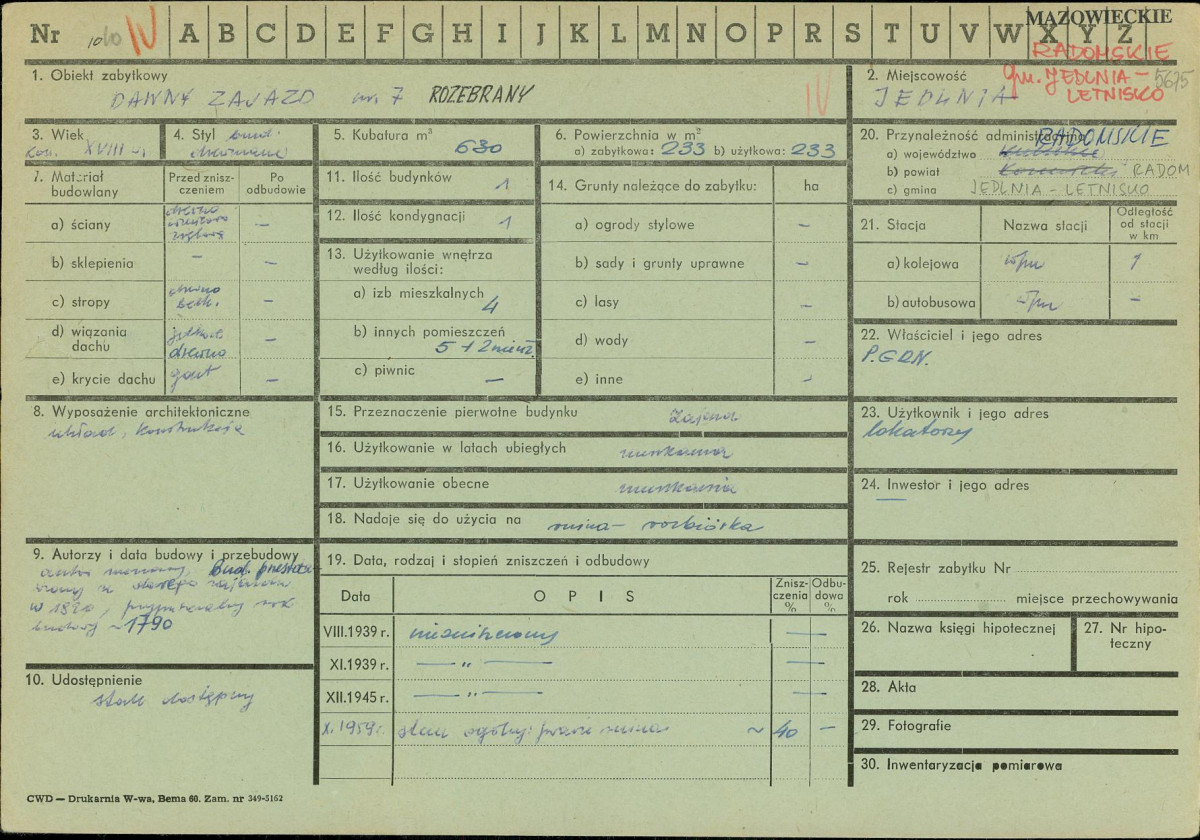 Nr 1010 IV A B C D E F G H I J K L M N O P R S T U V W X Y Z
MAZOWIECKIE
RADOMSKIE
gm. JEDLNIA-
LETNISKO
5675
1. Obiekt zabytkowy
DAWNY ZAJAZD nr. 7 ROZEBRANY
IV
2. Miejscowość
JEDLNIA
3. Wiek
kon. XVIII w.
4. Styl bud.
drewniane
5. Kubatura m³
630
6. Powierzchnia w m²
a) zabytkowa: 233 b) użytkowa: 233
7. Materiał budowlany
Przed znisz-
czeniem
Po
odbudowie
a) ściany
drewno
–
b) sklepienia
– –
c) stropy
drewno
belk.
–
d) wiązania
dachu
drewno
–
e) krycie dachu
gont
–
8. Wyposażenie architektoniczne
układ, konstrukcja
9. Autorzy i data budowy i przebudowy
autor nieznany, Bud. przesta-
w 1820, przypuszczalny rok
budowy ~1790
10. Udostępnienie
stale dostępny
11. Ilość budynków
1
12. Ilość kondygnacji
1
13. Użytkowanie wnętrza
według ilości:
a) izb mieszkalnych
4
b) innych pomieszczeń
5 + 2 mieszk.
c) piwnic
–
14. Grunty należące do zabytku:
ha
a) ogrody stylowe –
b) sady i grunty uprawne –
c) lasy –
d) wody –
e) inne –
15. Przeznaczenie pierwotne budynku zajazd
16. Użytkowanie w latach ubiegłych mieszkania
17. Użytkowanie obecne mieszkania
18. Nadaje się do użycia na ruina – rozbiórka
19. Data, rodzaj i stopień zniszczeń i odbudowy
Data
O P I S
Znisz-
czenia
%
Odbu-
dowa
%
VIII.1939 r. niezniszczony —
XI.1939 r. — „ — —
XII.1945 r. — „ — —
X.1959 r. stan ogólny: prawie ruina ~ 40 –
20. Przynależność administracyjna
a) województwo RADOMSKIE
b) powiat RADOM
c) gmina JEDLNIA - LETNISKO
21. Stacja
Nazwa stacji
Odległość
od stacji
w km
a) kolejowa w/m 1
b) autobusowa w/m –
22. Właściciel i jego adres
P.GRN.
23. Użytkownik i jego adres
lokatorzy
24. Inwestor i jego adres
—
25. Rejestr zabytku Nr
rok miejsce przechowywania
26. Nazwa księgi hipotecznej
27. Nr hipo-
teczny
28. Akta
29. Fotografie
30. Inwentaryzacja pomiarowa
CWD — Drukarnia W-wa, Bema 60. Zam. nr 349-5162